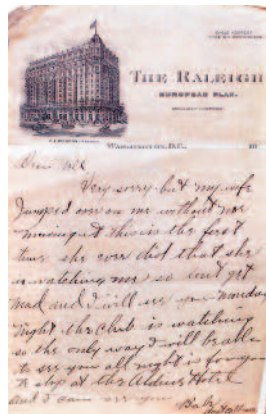 THE RALEIGH
EUROPEAN PLAN.
WASHINGTON, D.C.,
Dear
Very sorry but my wife
Jumped over on me without me
this is the first
time she ever did that she
is watching me so don't get
mad and I will see you monday
night the Club is watching
so the only way I will be able
to see you all night is for you
to stop at the Aldine Hotel
and I can see you
Babe